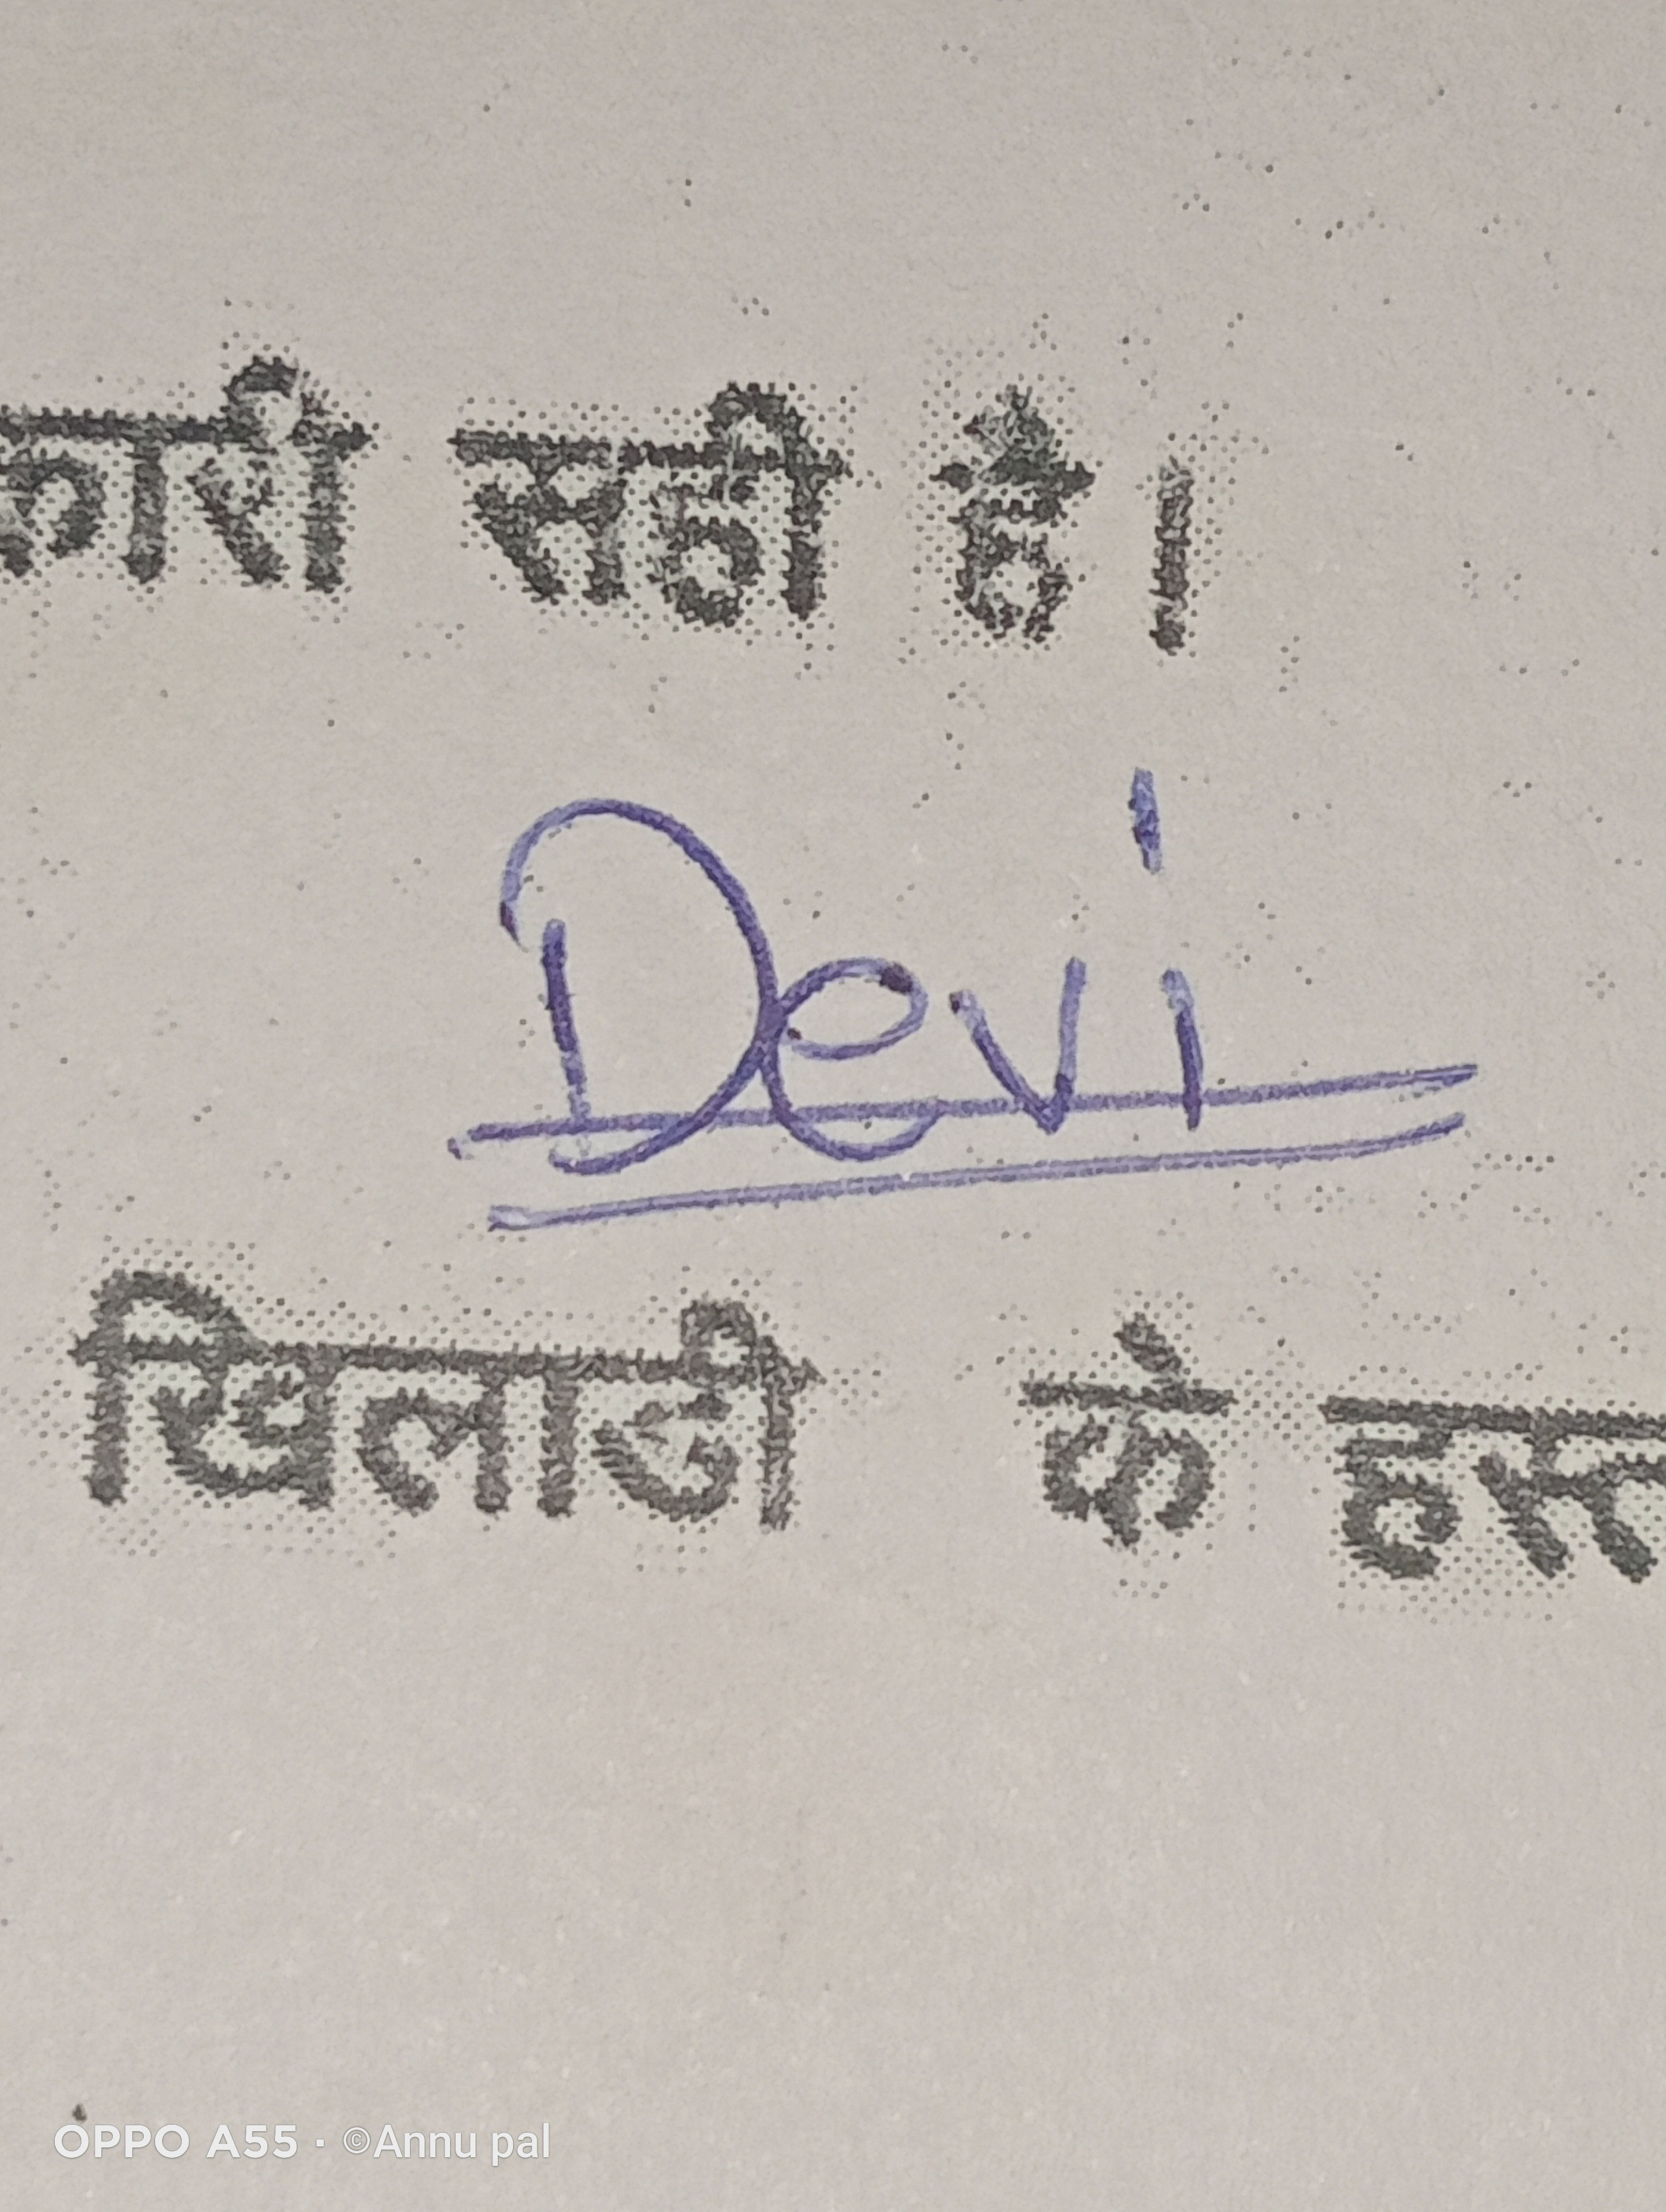 कारी सही है।
Devi
खिलाडी के हस्त
OPPO A55 · ©Annu pal